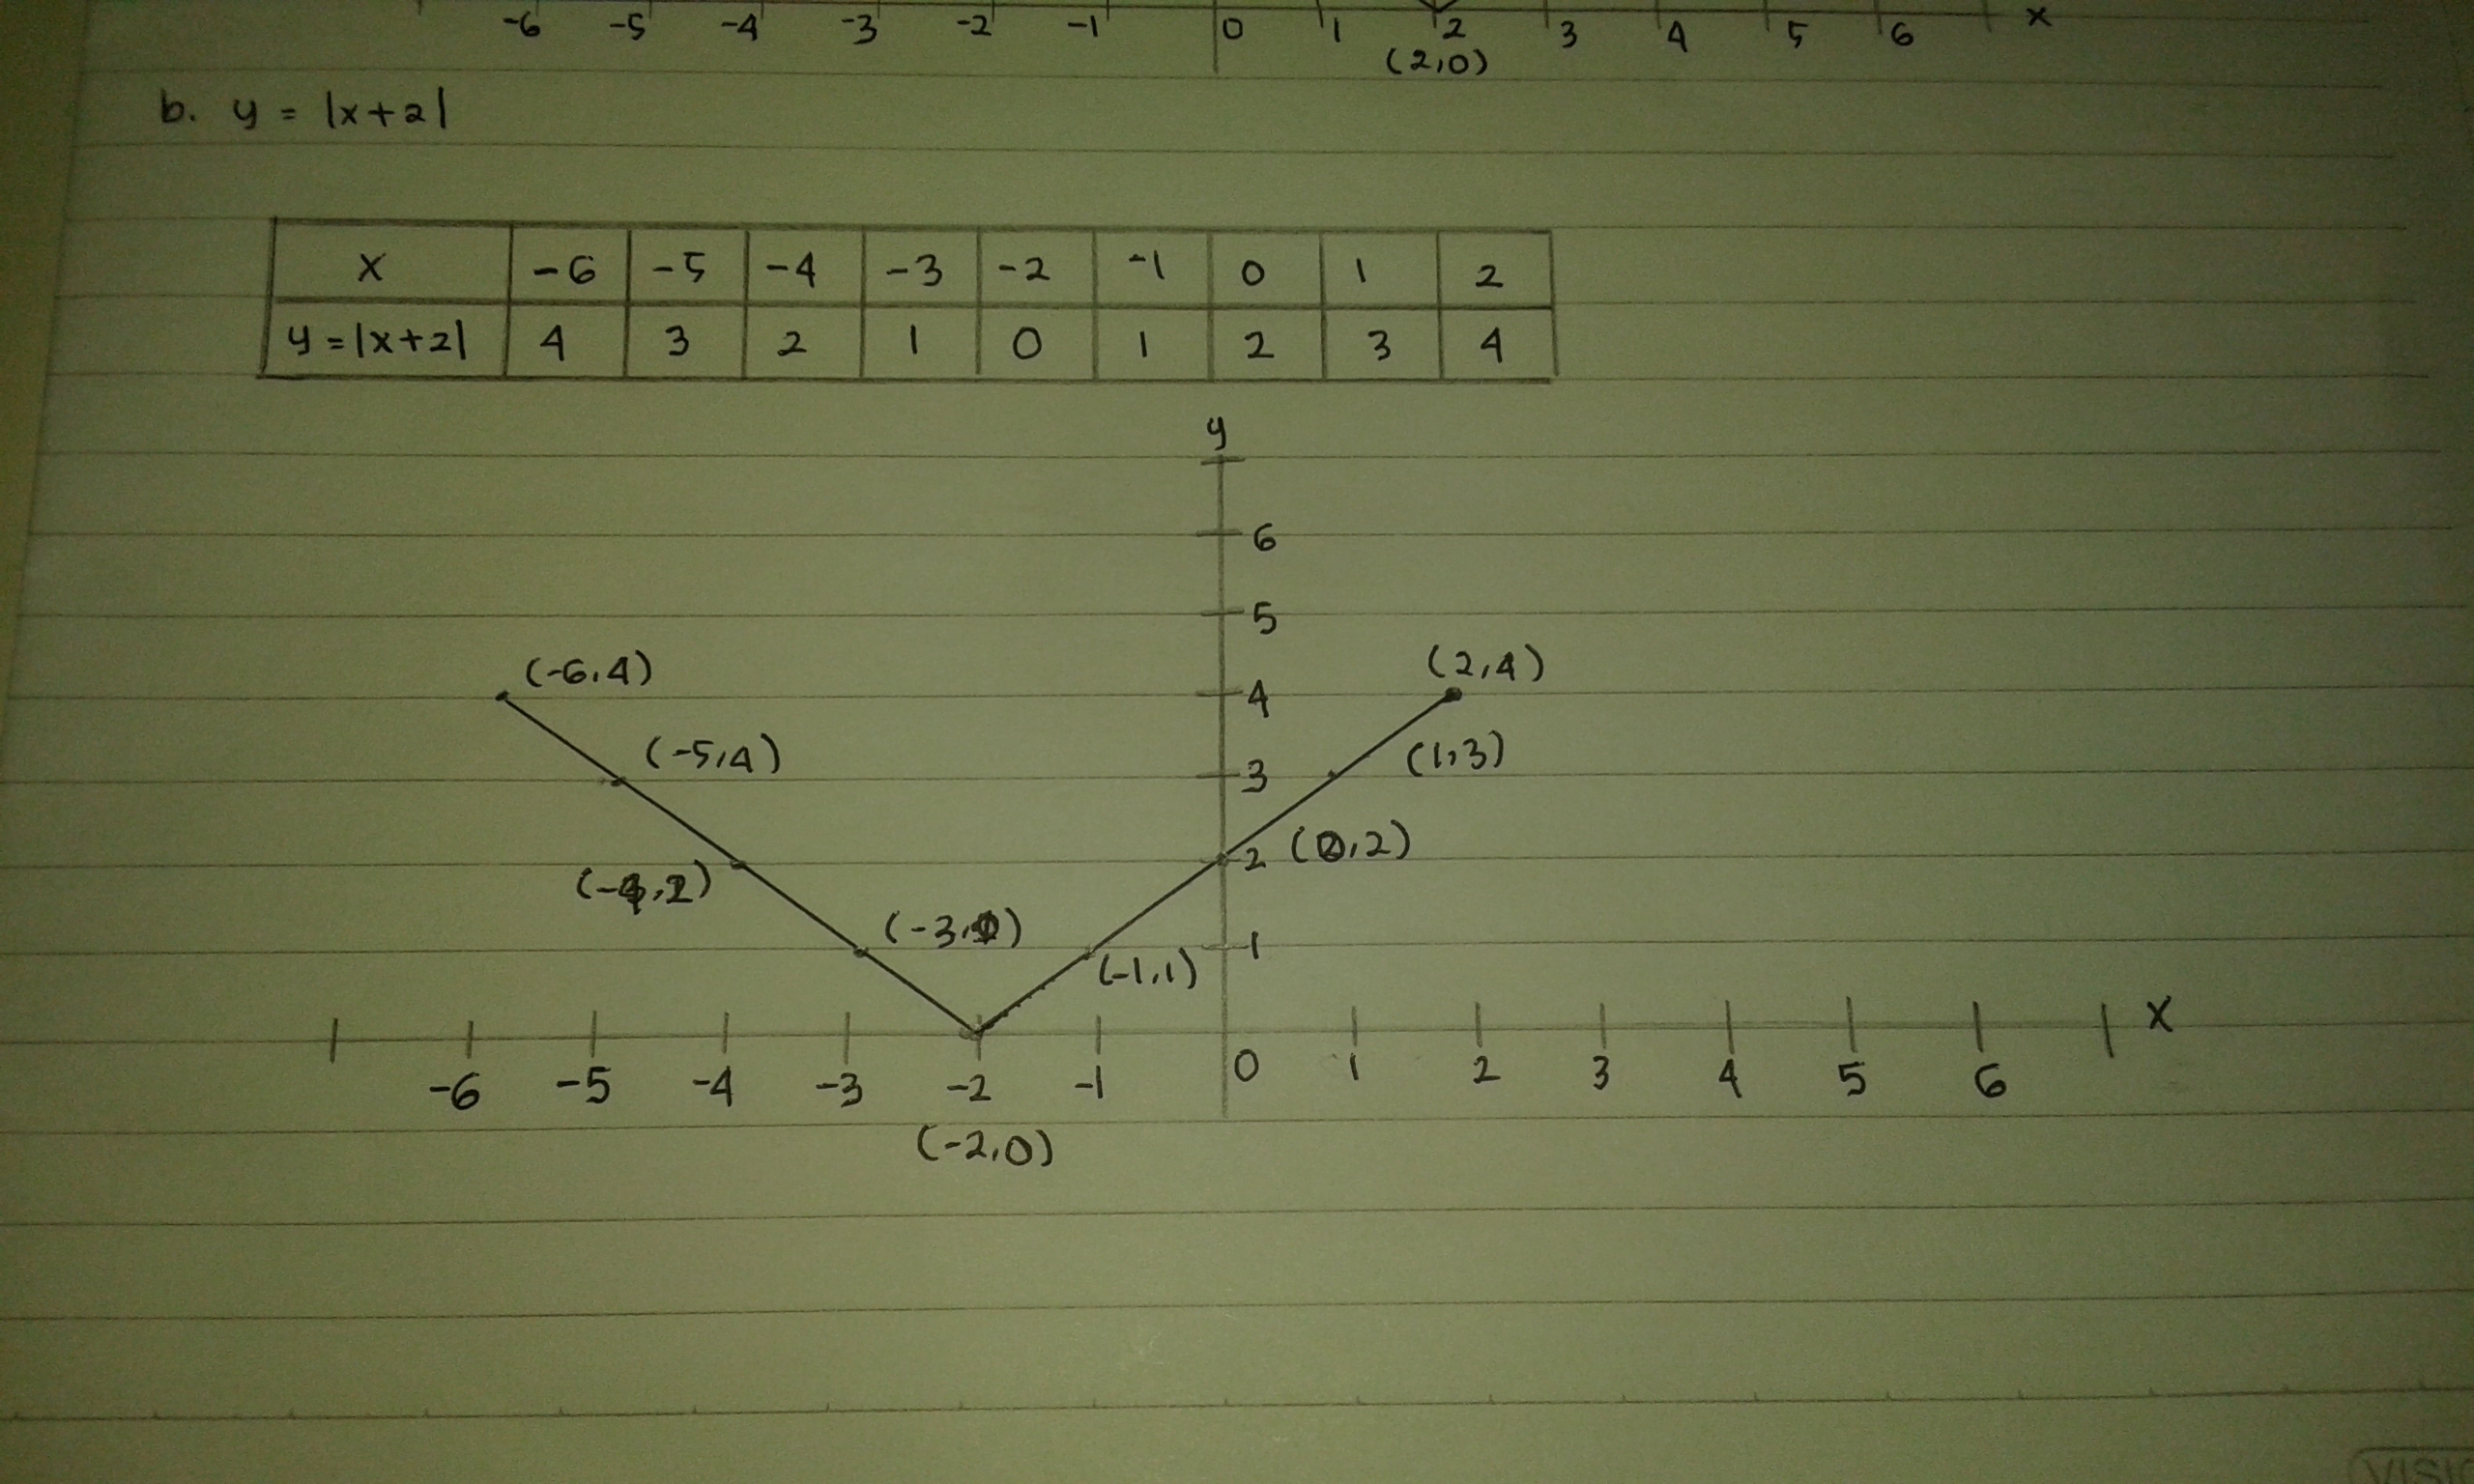 -6 -5 -4 -3 -2 -1 0 1 2 3 4 5 6 x
(2,0)
b. y = |x+2|
x -6 -5 -4 -3 -2 -1 0 1 2
y=|x+2| 4 3 2 1 0 1 2 3 4
y
6
5
(-6,4) (2,4)
4
(-5,4) 3 (1,3)
2 (0,2)
(-4,2)
(-3,1) 1
(-1,1)
x
-6 -5 -4 -3 -2 -1 0 1 2 3 4 5 6
(-2,0)